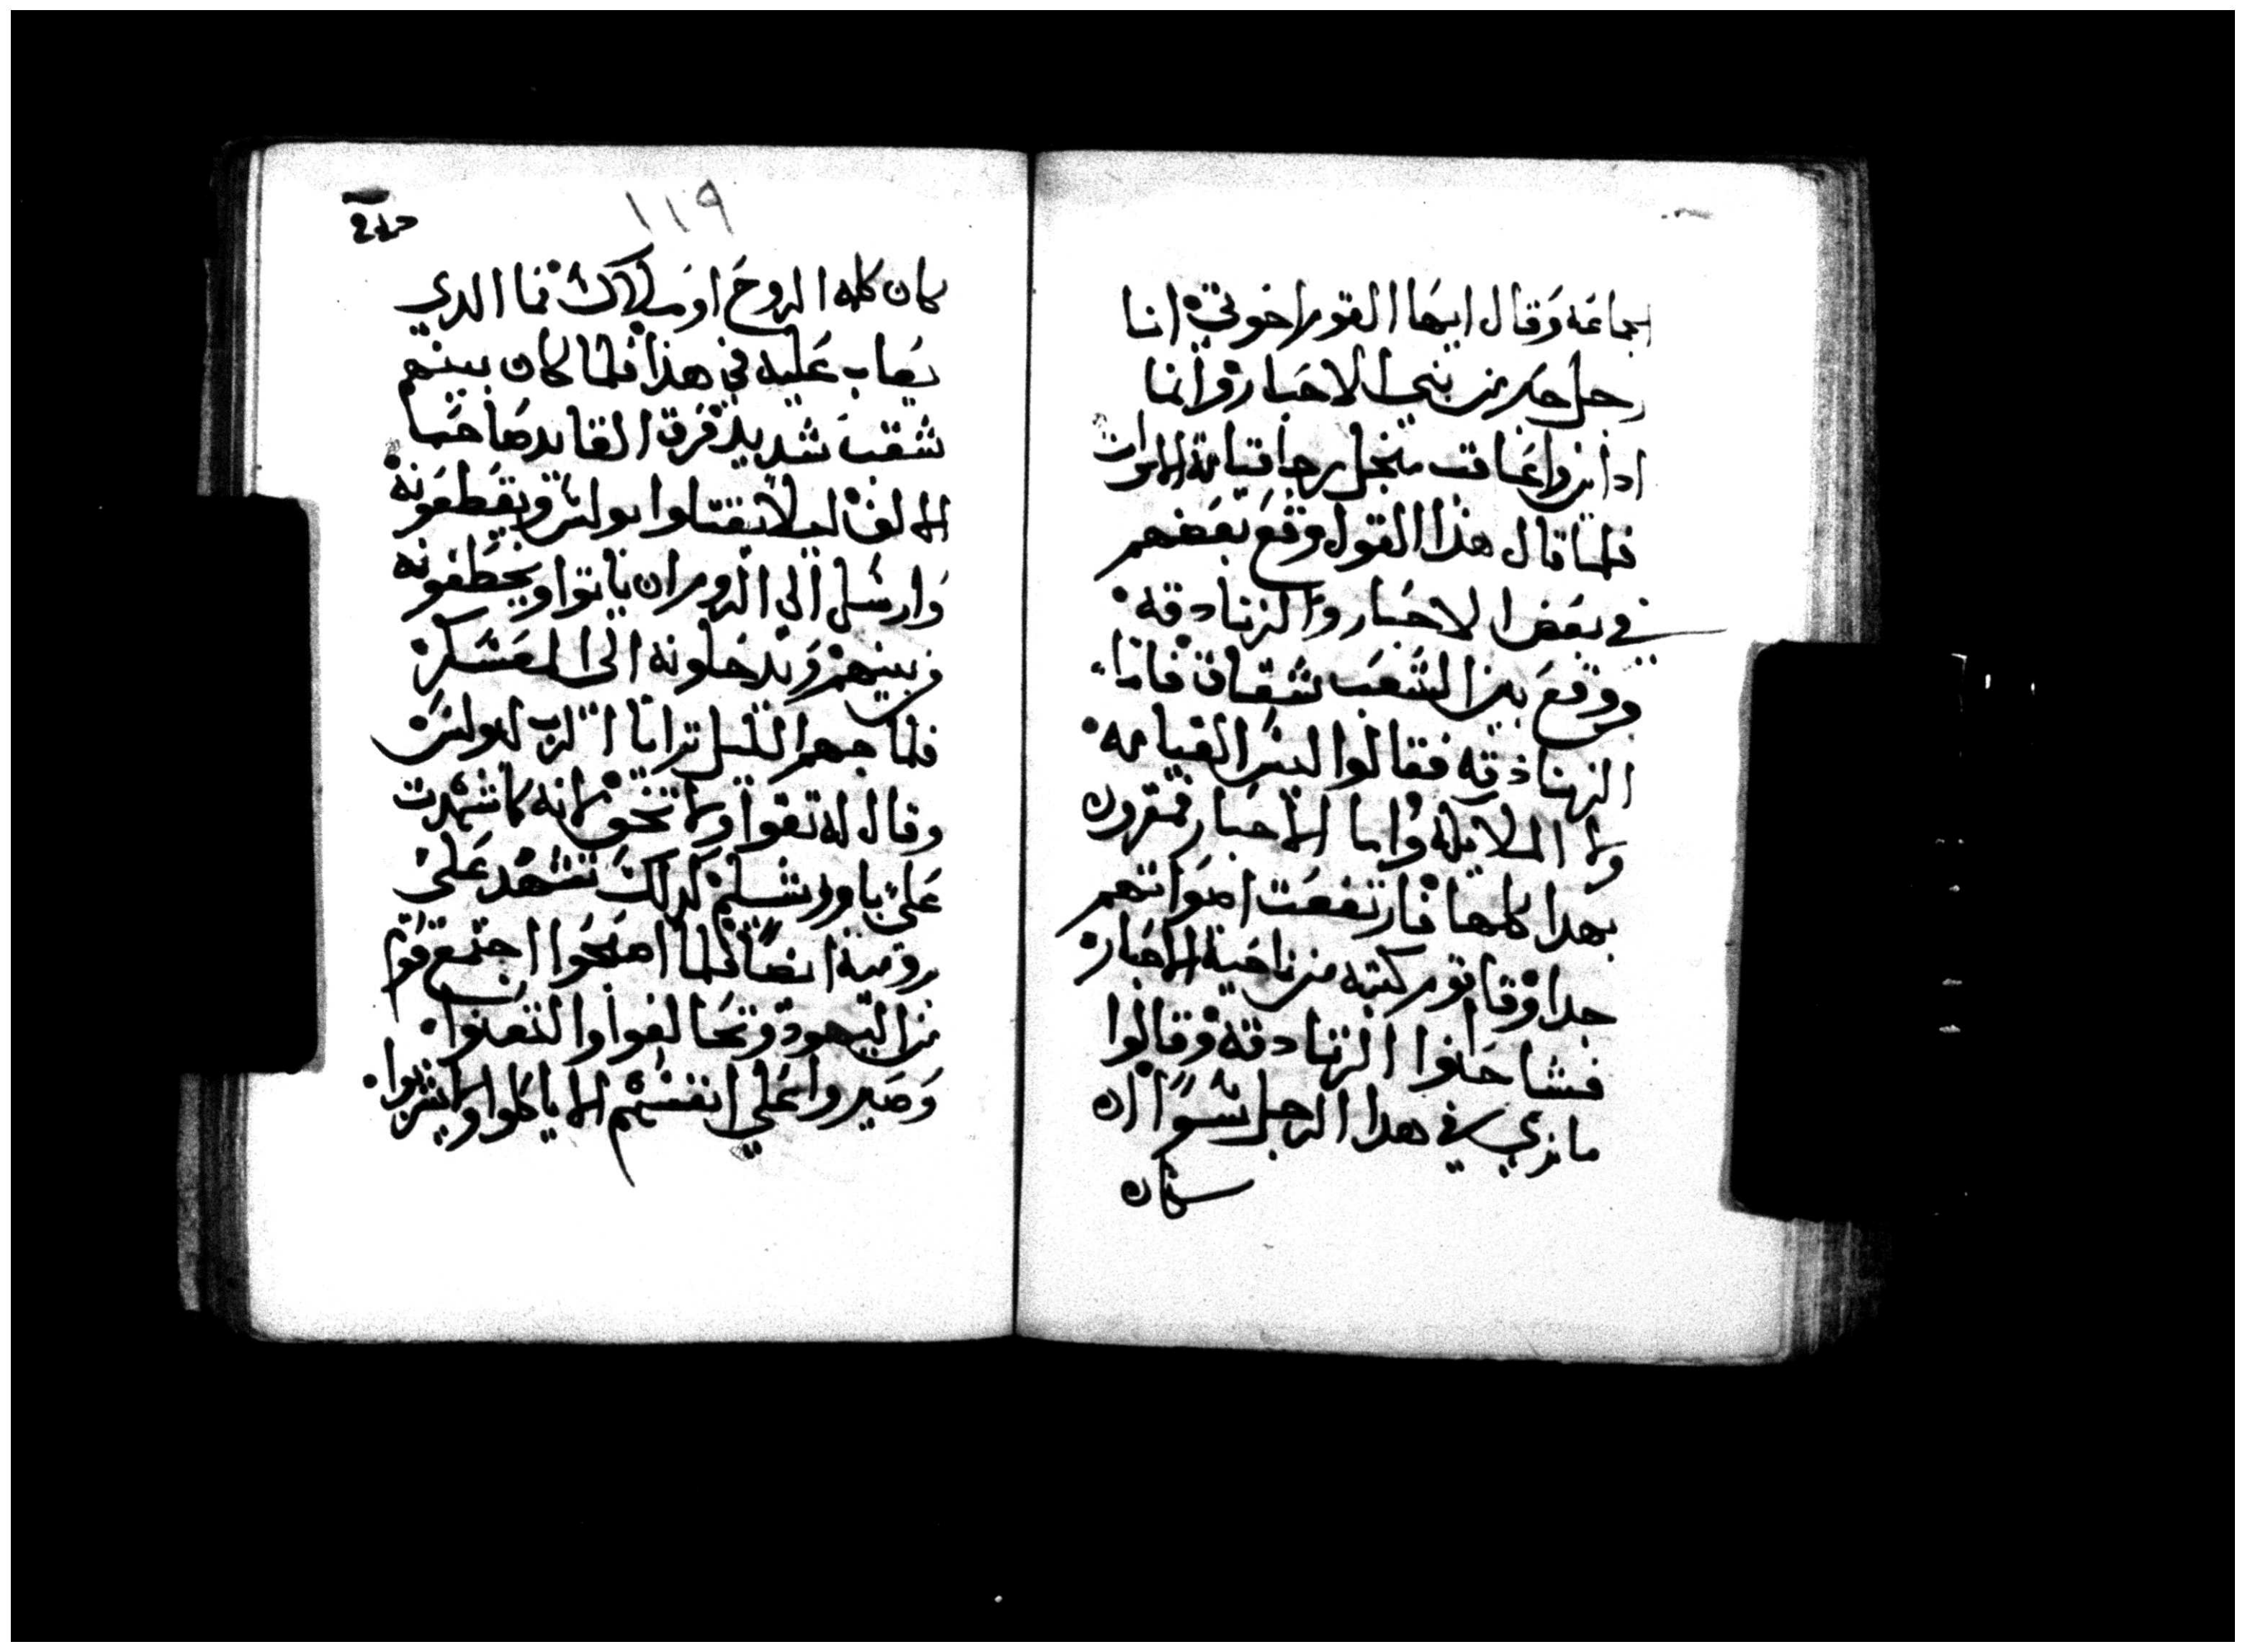 الجماعه وقال ايها القوم اخوتي انا
رجل حبر من بني الاحبار وانما
ادان واعاقب من اجل رجا قيامة الاموات
فلما قال هذا القول وقع بعضهم
في بعض الاحبار والزنادقه
ووقع بين الشعب شقاق فاما
الزنادقه فقالوا ليس القيامه
ولا الملايكه واما الاحبار فمقرون
بهدا كلها فارتفعت اصواتهم
جدا وقام قوم كتبه من ناحية الاحبار
فشاحنوا الزنادقة وقالوا
ما نري في هدا الرجل سوًا ان
كان
١١٩
كان كلمه الروح او ملاك فما الدي
يعاب عليه في هذا فلما كان بينهم
شغب شديد فرق القايد صاحب
الالف ليلا يقتلوا بولس ويقطعونه
وارسل الى الروم ان ياتوا ويخطفونه
من بينهم ويدخلونه الى المعسكر
فلما جهم الليل ترايا الرب لبولس
وقال له تقوا ولا تخف لانه كما شهدت
علي باورشليم كدلك تشهد علي
برومية ايضًا فلما اصبحوا اجتمع قوم
من اليهود وتحالفوا والتعنوا
وصيروا علي انفسهم الا ياكلوا ولا يشربوا